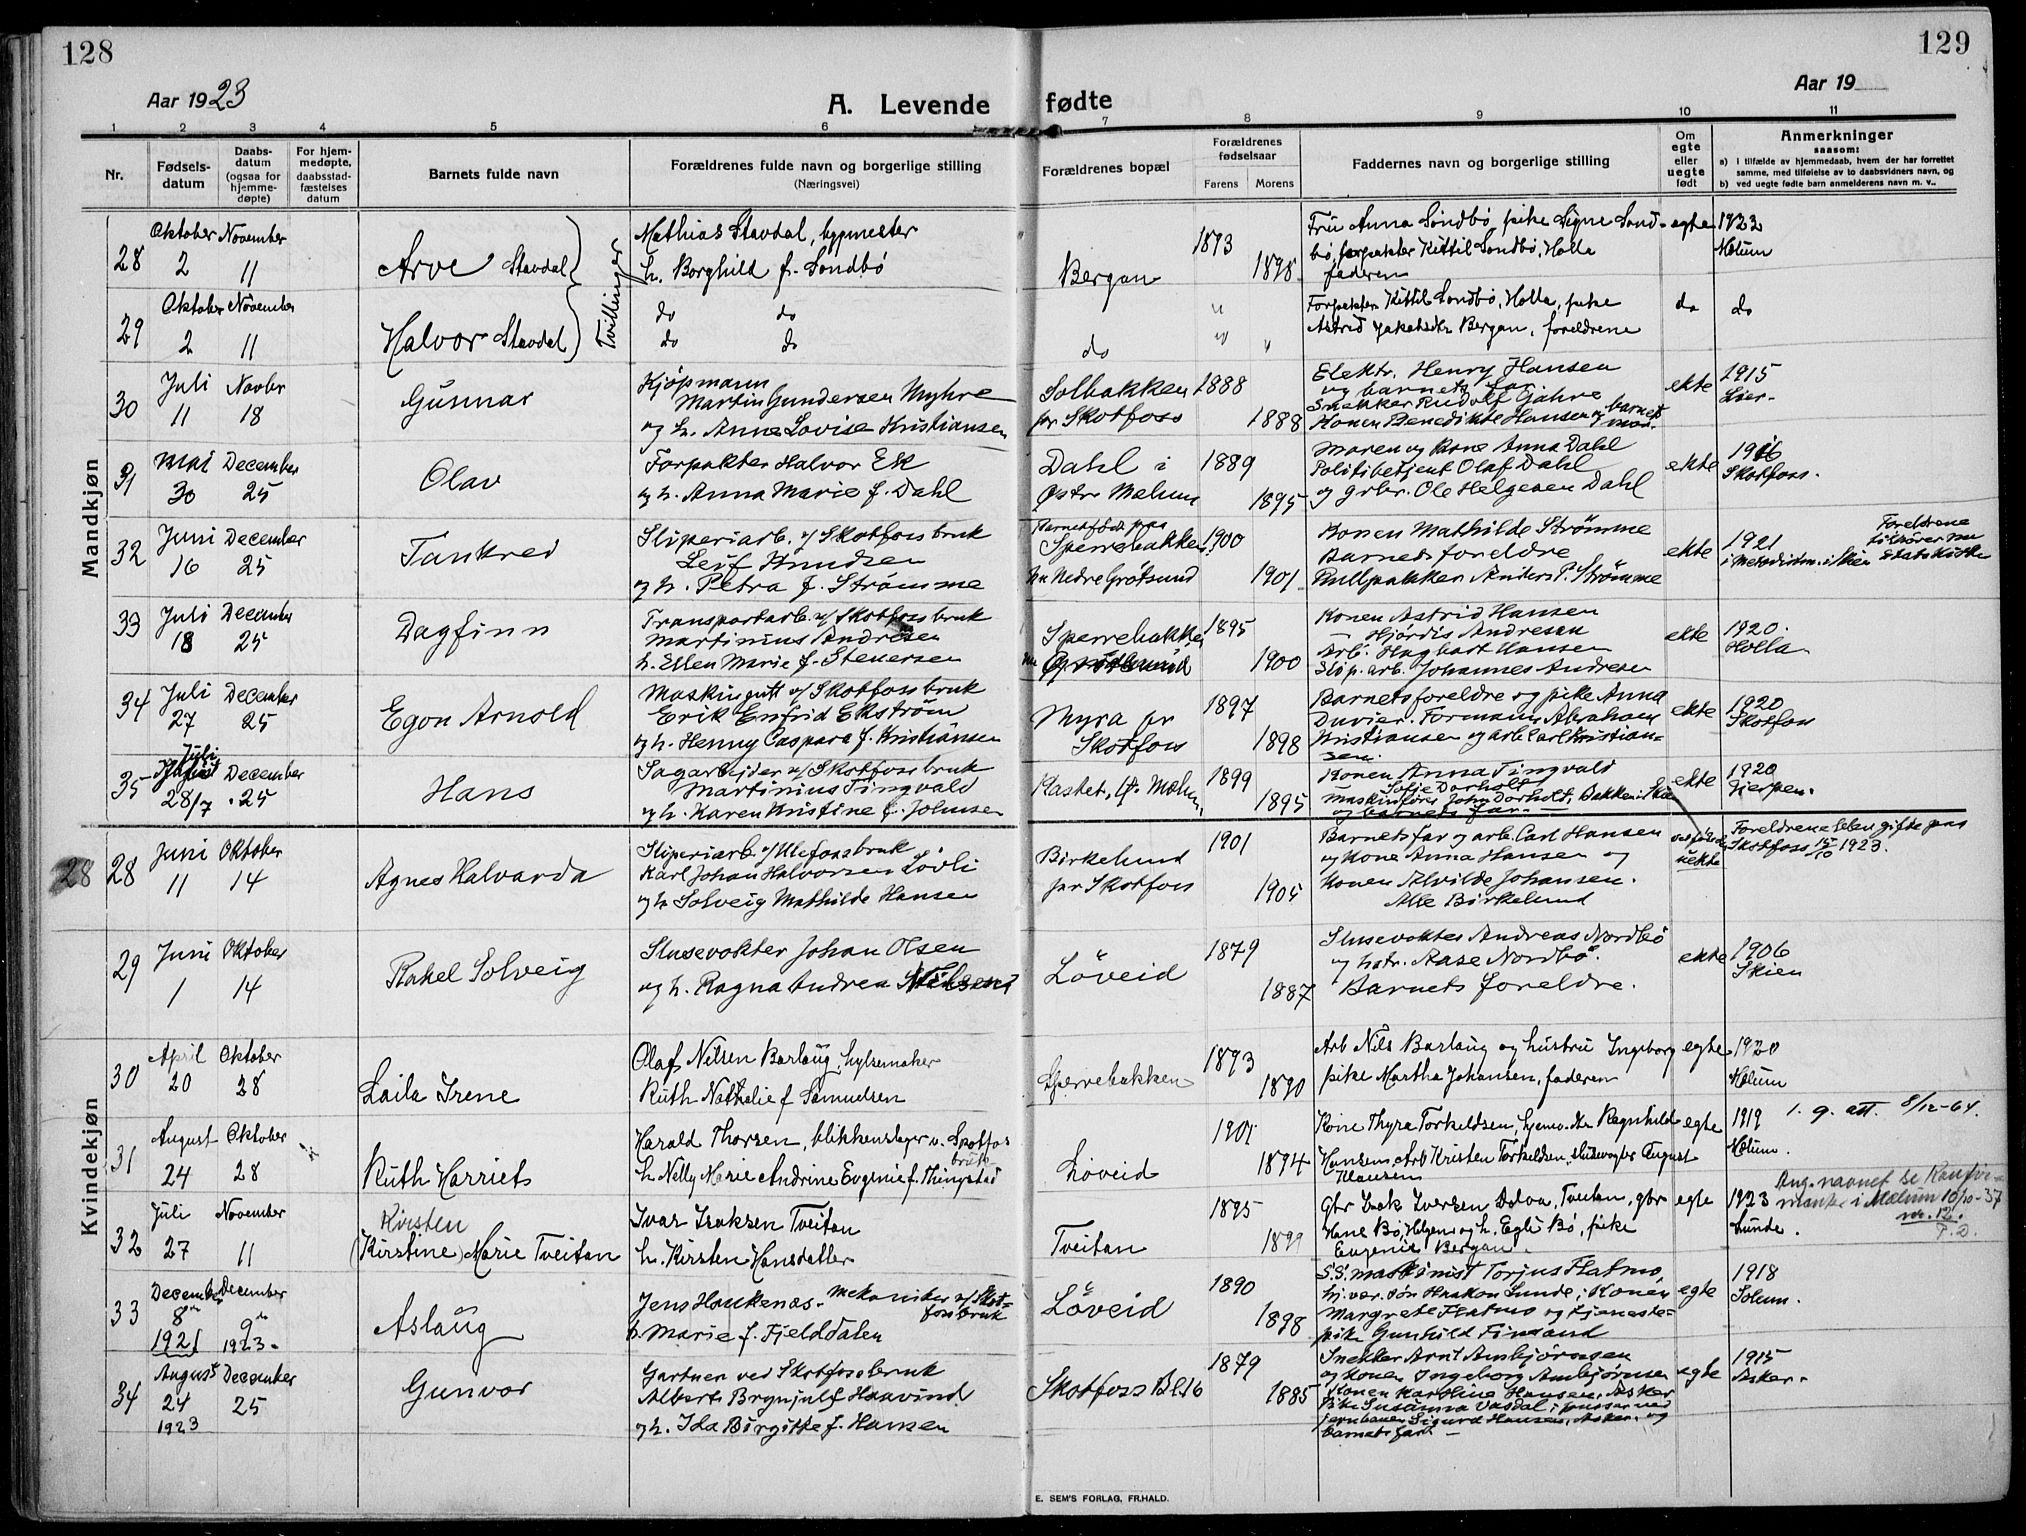 128
129
Aar 1923
Aar 19
A. Levende fødte
1 2 3 4 5 6 7 8 9 10 11
Nr.
Fødselsdatum
Daabsdatum (ogsaa for hjemmedøpte)
For hjemmedøpte, daabsstadfæstelses datum
Barnets fulde navn
Forældrenes fulde navn og borgerlige stilling
(Næringsvei)
Forældrenes bopæl
Forældrenes fødselsaar
Farens Morens
Faddernes navn og borgerlige stilling
Om egte eller uegte født
Anmerkninger
saasom:
a) i tilfælde av hjemmedaab, hvem der har forrettet samme, med tilføielse av to daabsvidners navn, og
b) ved uegte fødte barn anmelderens navn m. v..
Mandkjøn
28 Oktober 2 November 11 Arve Stavdal Tvillinger
Mathias Stavdal, byggmester
h. Borghild f. Sondbø
Bergan 1893 1898
Fru Anna Sondbø, pike Signe Sondbø, forpakter Kittil Sondbø, Holla
faderen
egte 1923 Melum
29 Oktober 2 November 11 Halvor Stavdal
do do
do do
do " "
Forpakter Kittil Sondbø, Holla, pike
Astrid Jakobsdr. Bergan, foreldrene
do do
30 Juli 11 Novbr 18 Gunnar
Kjøpmann
Martin Gundersen Myhre
og h. Anna Lovise Kristiansen
Solbakken pr Skotfoss 1888 1888
Elektr. Henry Hansen
og barnets far
Snekker Rudolf Gjahre
Konen Benedikte Hansen og barnets mor.
ekte 1915 Lier.
31 Mai 30 December 25 Olav
Forpakter Halvor Ek
og h. Anna Marie f. Dahl
Dahl i Østre Melum 1889 1895
Maren og Kone Anna Dahl
Politibetjent Olaf Dahl
og grbr. Ole Helgesen Dahl
ekte 1916 Skotfoss.
32 Juni 16 December 25 Tankred
Sliperiarb. v/ Skotfoss bruk
Leif Knudsen
og h. Petra f. Strømme
Barnet født paa
Sperrebakken
nu Nedre Grøtsund 1900 1901
Konen Mathilde Strømme
Barnets foreldre
Rullpakker Anders P. Strømme
ekte 1921
i Metodistm. i Skien
Foreldrene tilhører nu Statskirken
33 Juli 18 December 25 Dagfinn
Transportarb. v/ Skotfoss bruk
Martinius Andresen
h. Ellen Marie f. Stenersen
Sperrebakken
nu Grøtsund 1895 1900
Konen Astrid Hansen
— Hjørdis Andresen
Arb. Hagbart Hansen
Slip. arb. Johannes Andresen
ekte 1920. Holla
34 Juli 27 December 25 Egon Arnold
Maskingutt v/ Skotfoss bruk
Erik Enfrid Ekstrøm
og h. Henny Caspara f. Kristiansen
Myra pr Skotfoss 1897 1898
Barnets foreldre og pike Anna
Duvier. Formann Abraham
Kristiansen og arb. Carl Kristiansen.
ekte 1920 Skotfoss
35 Juli 28/7 December 25 Hans
Sagarbeider v/ Skotfoss bruk
Martinius Tingvald
og h. Karen Kristine f. Johnsen
Rastet, Ø. Melum 1899 1895
Konen Anna Tingvald
Sofie Dorholt
Maskinfører John Dorholt, Bakken i Skien
og barnets far
ekte 1920 Gjerpen.
Kvindekjøn
28
28 Juni 11 Oktober 14 Agnes Halvarda
Sliperiarb. v/ Ulefoss bruk
Karl Johan Halvorsen Løvli
og h. Solveig Mathilde Hansen
Birkelund pr Skotfoss 1901 1905
Barnets far og arb. Carl Hansen
og Kone Anna Hansen og
Konen Alvilde Johansen.
Alle Birkelund
uekte
Foreldrene blev gifte paa
Skotfoss 15/10 1923.
29 Juni 1 Oktober 14 Rakel Solveig
Slusevokter Johan Olsen
og h. Ragna Andrea Nilsen
Løveid 1879 1887
Slusevokter Andreas Nordbø
og hstr. Aase Nordbø.
Barnets foreldre.
ekte 1906 Skien
30 April 20 Oktober 28 Laila Irene
Olaf Nilsen Barlaug, hylsemaker
Ruth Nathalie f. Samuelsen
Sperrebakken 1893 1890
Arb Nils Barlaug og hustru Ingeborg
pike Martha Johansen, faderen
egte 1920 Melum
31 August 24 Oktober 28 Ruth Harriets
Harald Thorsen, blikkenslager v. Skotfos
bruk
h. Nelly Marie Andrine Evgenie f. Thingstad
Løveid 1901 1894
Kone Thyra Torkeldsen, hjemv. dtr. Ragnhild
Hansen, Arb Kristen Torkeldsen, slusevogter August
Klausen
egte 1919 Melum.
1. g. att. 8/12-64.
32 Juli 27 November 11 Kirsten
(Kirstine) Marie Tveitan
Ivar Isaksen Tveitan
h. Kirsten Hansdatter
Tveitan 1895 1899
Gbr Isak Iversen Tveitan, gbr
Hans Bø, Helgen og h. Egli Bø, pike
Eugenie Bergan.
egte 1923 Lunde.
Ang. navnet se
i Melum 10/10-37
nr. 12.
33 December 8de 1921 December 9de 1923. Aslaug
Jens Haukenæs. Mekaniker v/ Skotfoss bruk
h. Marie f. Fjelddalen
Løveid 1890 1898
S.S. maskinist Torjus Flatmo,
hj. vær. søn Haakon Lunde, Konen
Margrete Flatmo og tjenestepike Gunhild Finsand
egte 1918 Solum.
34 August 24 1923 December 25 Gunvor
Gartner ved Skotfoss bruk
Albert Brynjulf Haavind
og h. Ida Birgitte f. Hansen
Skotfoss Bl. 16 1879 1885
Snekker Arnt Ambjørnsen
og konen Ingeborg Ambjørnsen
Konen Karoline Hansen, Asker
pike Susanna Vasdal, pusser ved
jernbanen Sigurd Hansen, Asker. og
barnets far. —
egte 1915 Asker.
E. SEM'S FORLAG, FR.HALD.